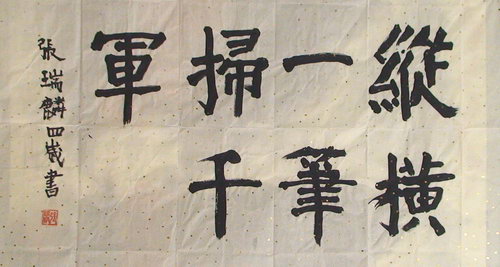 縱橫
一筆
掃千
軍
張瑞麟四歲書